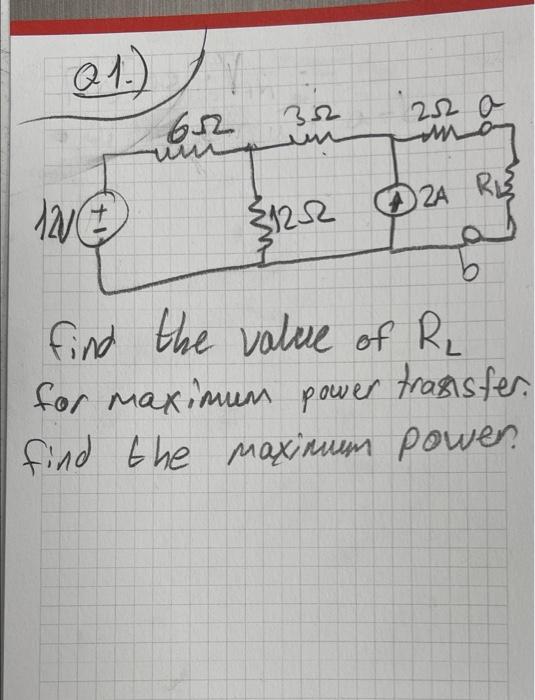 Q1.)
6Ω 3Ω 2Ω a
12V + - 12Ω 2A RL
b
find the value of RL
for maximum power transfer.
find the maximum power.